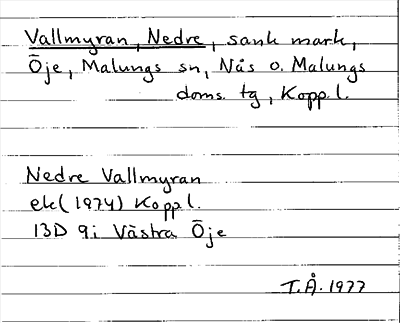 Vallmyran, Nedre, sank mark,
Öje, Malungs sn, Nås o. Malungs
doms. tg, Kopp. l.
Nedre Vallmyran
ek (1974) Kopp l.
13D 9i Västra Öje
T.Å. 1977